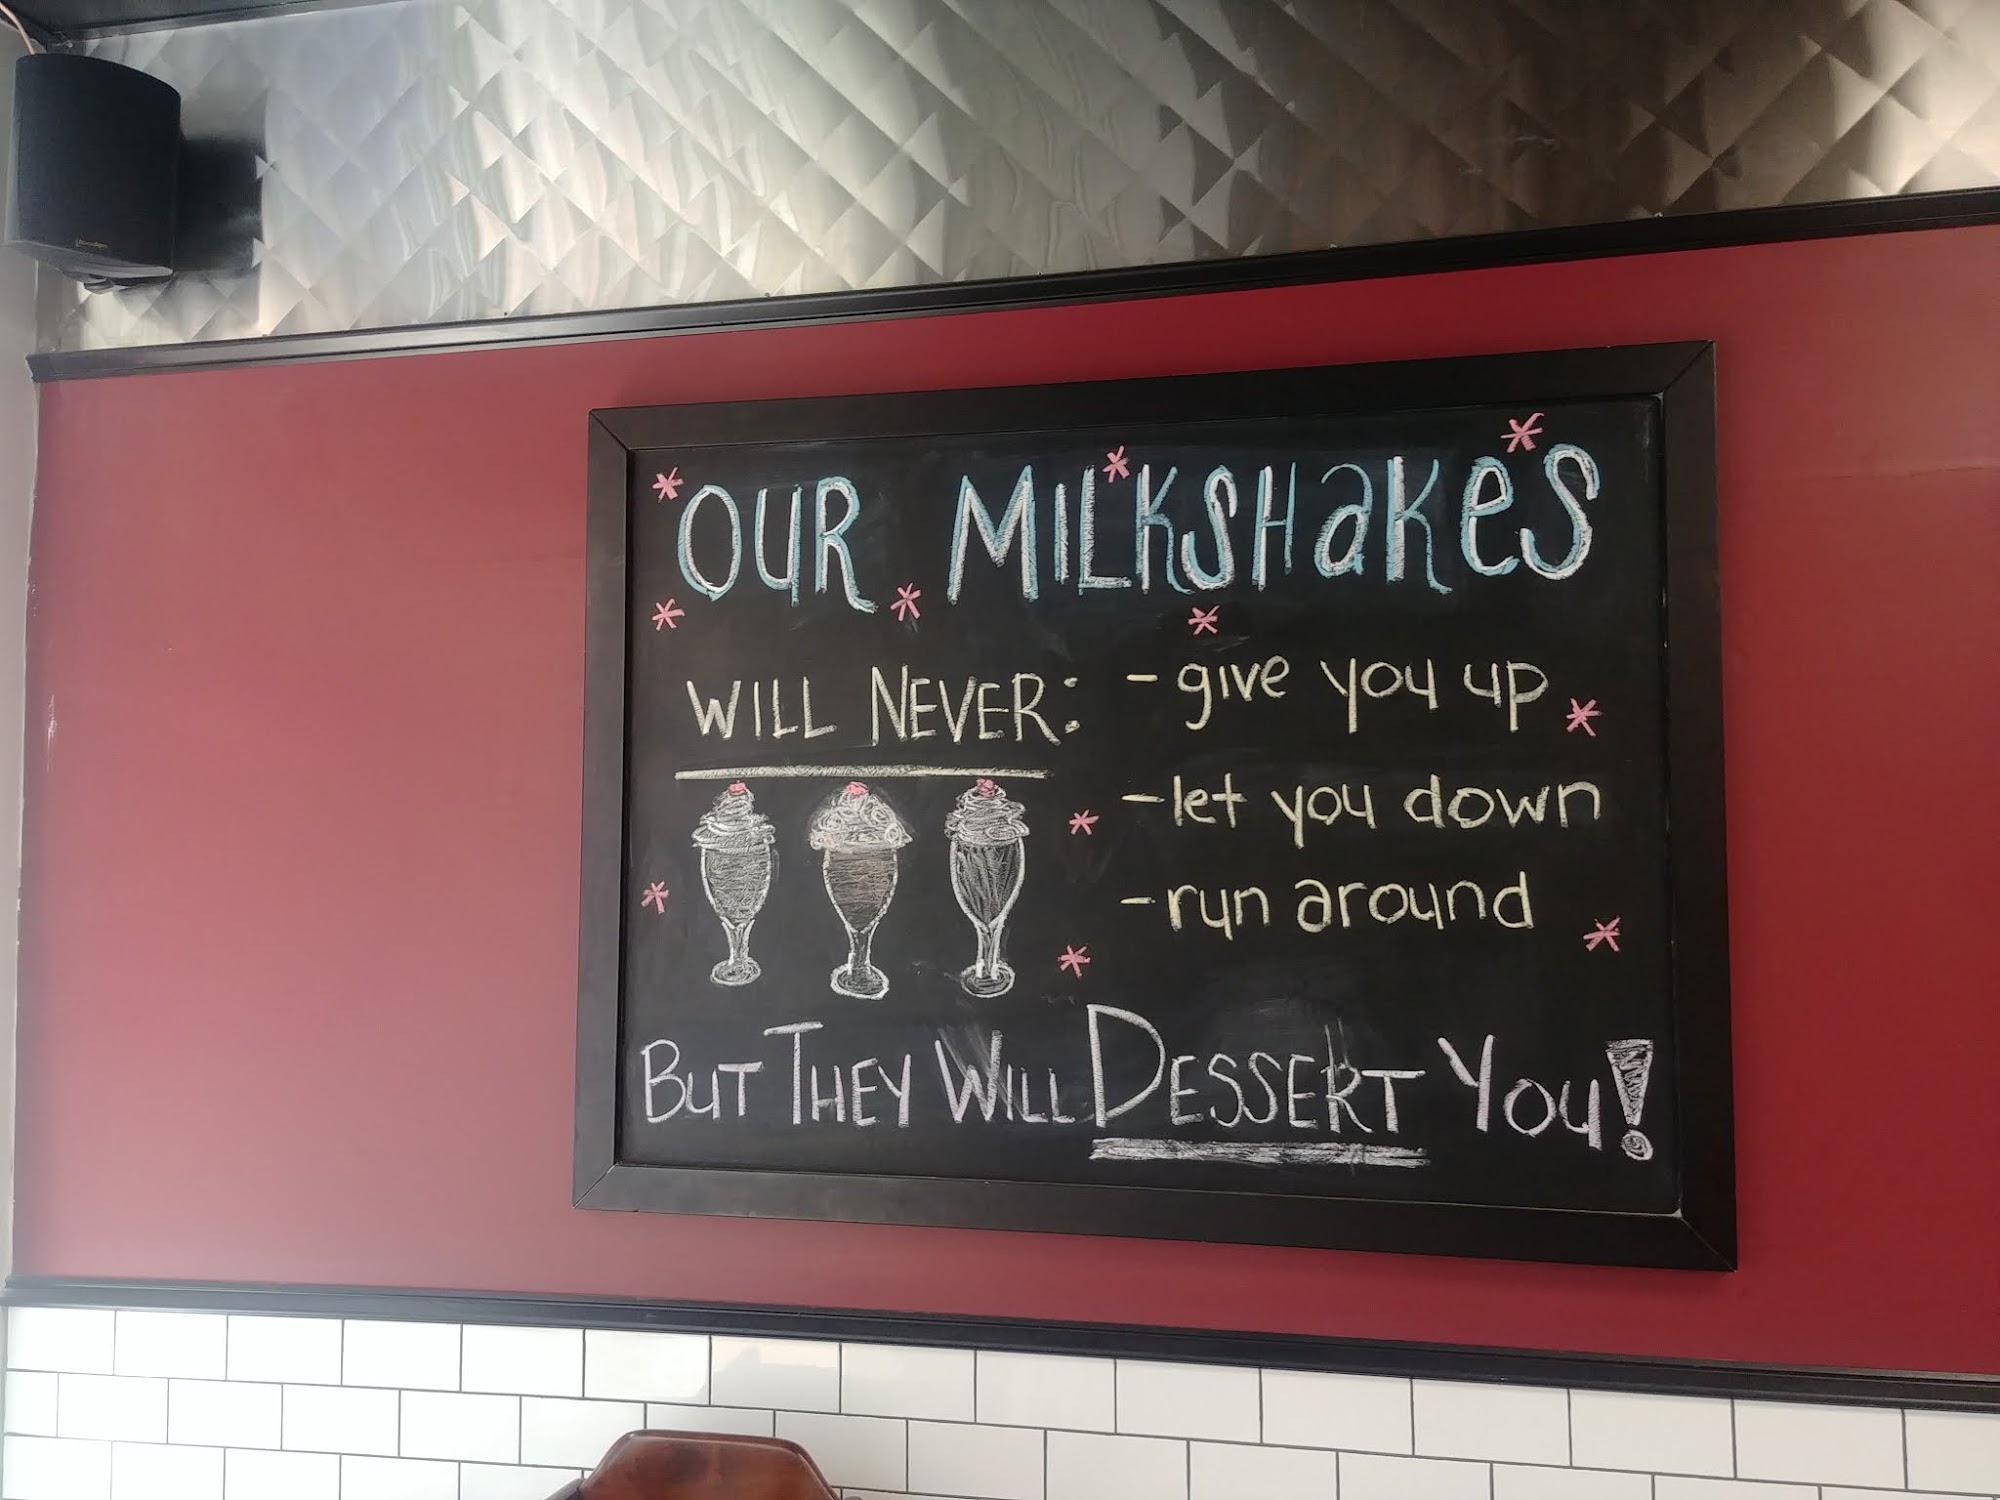 OUR MILKSHAKES
WILL NEVER:
- give you up
- let you down
- run around
BUT THEY WILL DESSERT YOU!